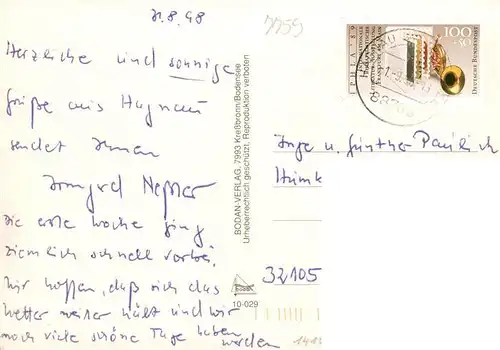 31.8.98
Herzliche und sonnige
Grüße aus Hagnau
sendet Ihnen
Irmgard
Die erste Woche ging
ziemlich schnell vorbei.
Wir hoffen, daß sich das
Wetter weiter hält und wir
noch viele schöne Tage haben
werden
BODAN-VERLAG, 7993 Kreßbronn/Bodensee
Urheberrechtlich geschützt, Reproduktion verboten
10-029
IPHLA '89
100
+50
DEUTSCHE BUNDESPOST
Inge u. Günther
32105